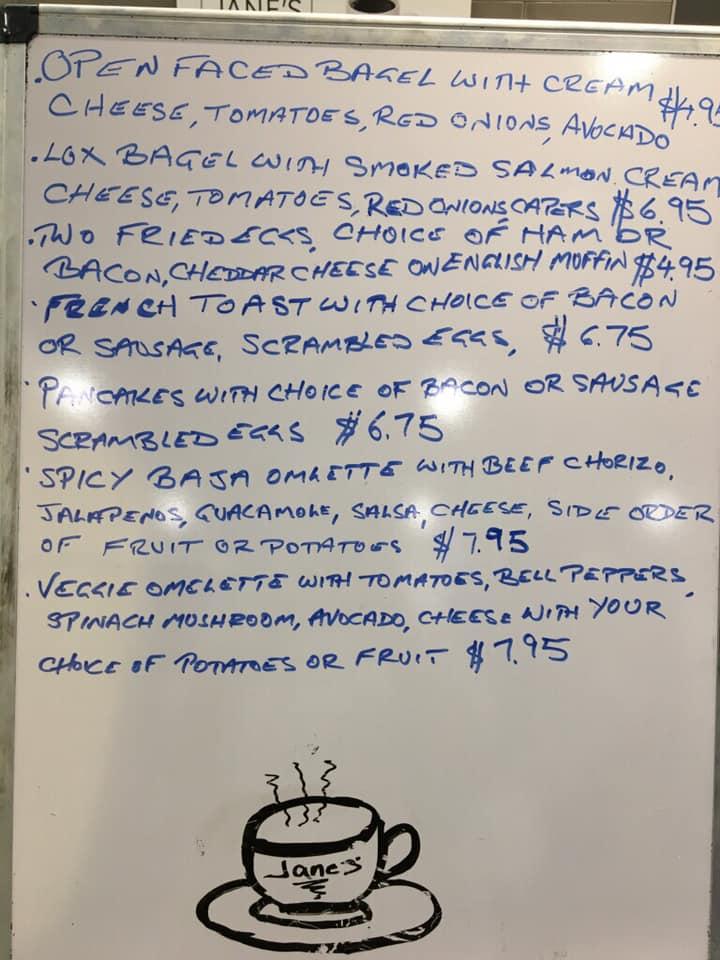 JANE'S
.OPEN FACED BAGEL WITH CREAM
CHEESE, TOMATOES, RED ONIONS, AVOCADO $4.95
.LOX BAGEL WITH SMOKED SALMON. CREAM
CHEESE, TOMATOES, RED ONIONS, CAPERS $6.95
.TWO FRIED EGGS, CHOICE OF HAM OR
BACON, CHEDDAR CHEESE ON ENGLISH MUFFIN $4.95
·FRENCH TOAST WITH CHOICE OF BACON
OR SAUSAGE, SCRAMBLED EGGS, $6.75
·PANCAKES WITH CHOICE OF BACON OR SAUSAGE
SCRAMBLED EGGS $6.75
·SPICY BAJA OMLETTE WITH BEEF CHORIZO,
JALAPENOS, GUACAMOLE, SALSA, CHEESE, SIDE ORDER
OF FRUIT OR POTATOES $7.95
.VEGGIE OMELETTE WITH TOMATOES, BELL PEPPERS,
SPINACH MUSHROOM, AVOCADO, CHEESE WITH YOUR
CHOICE OF POTATOES OR FRUIT $7.95
Jane's